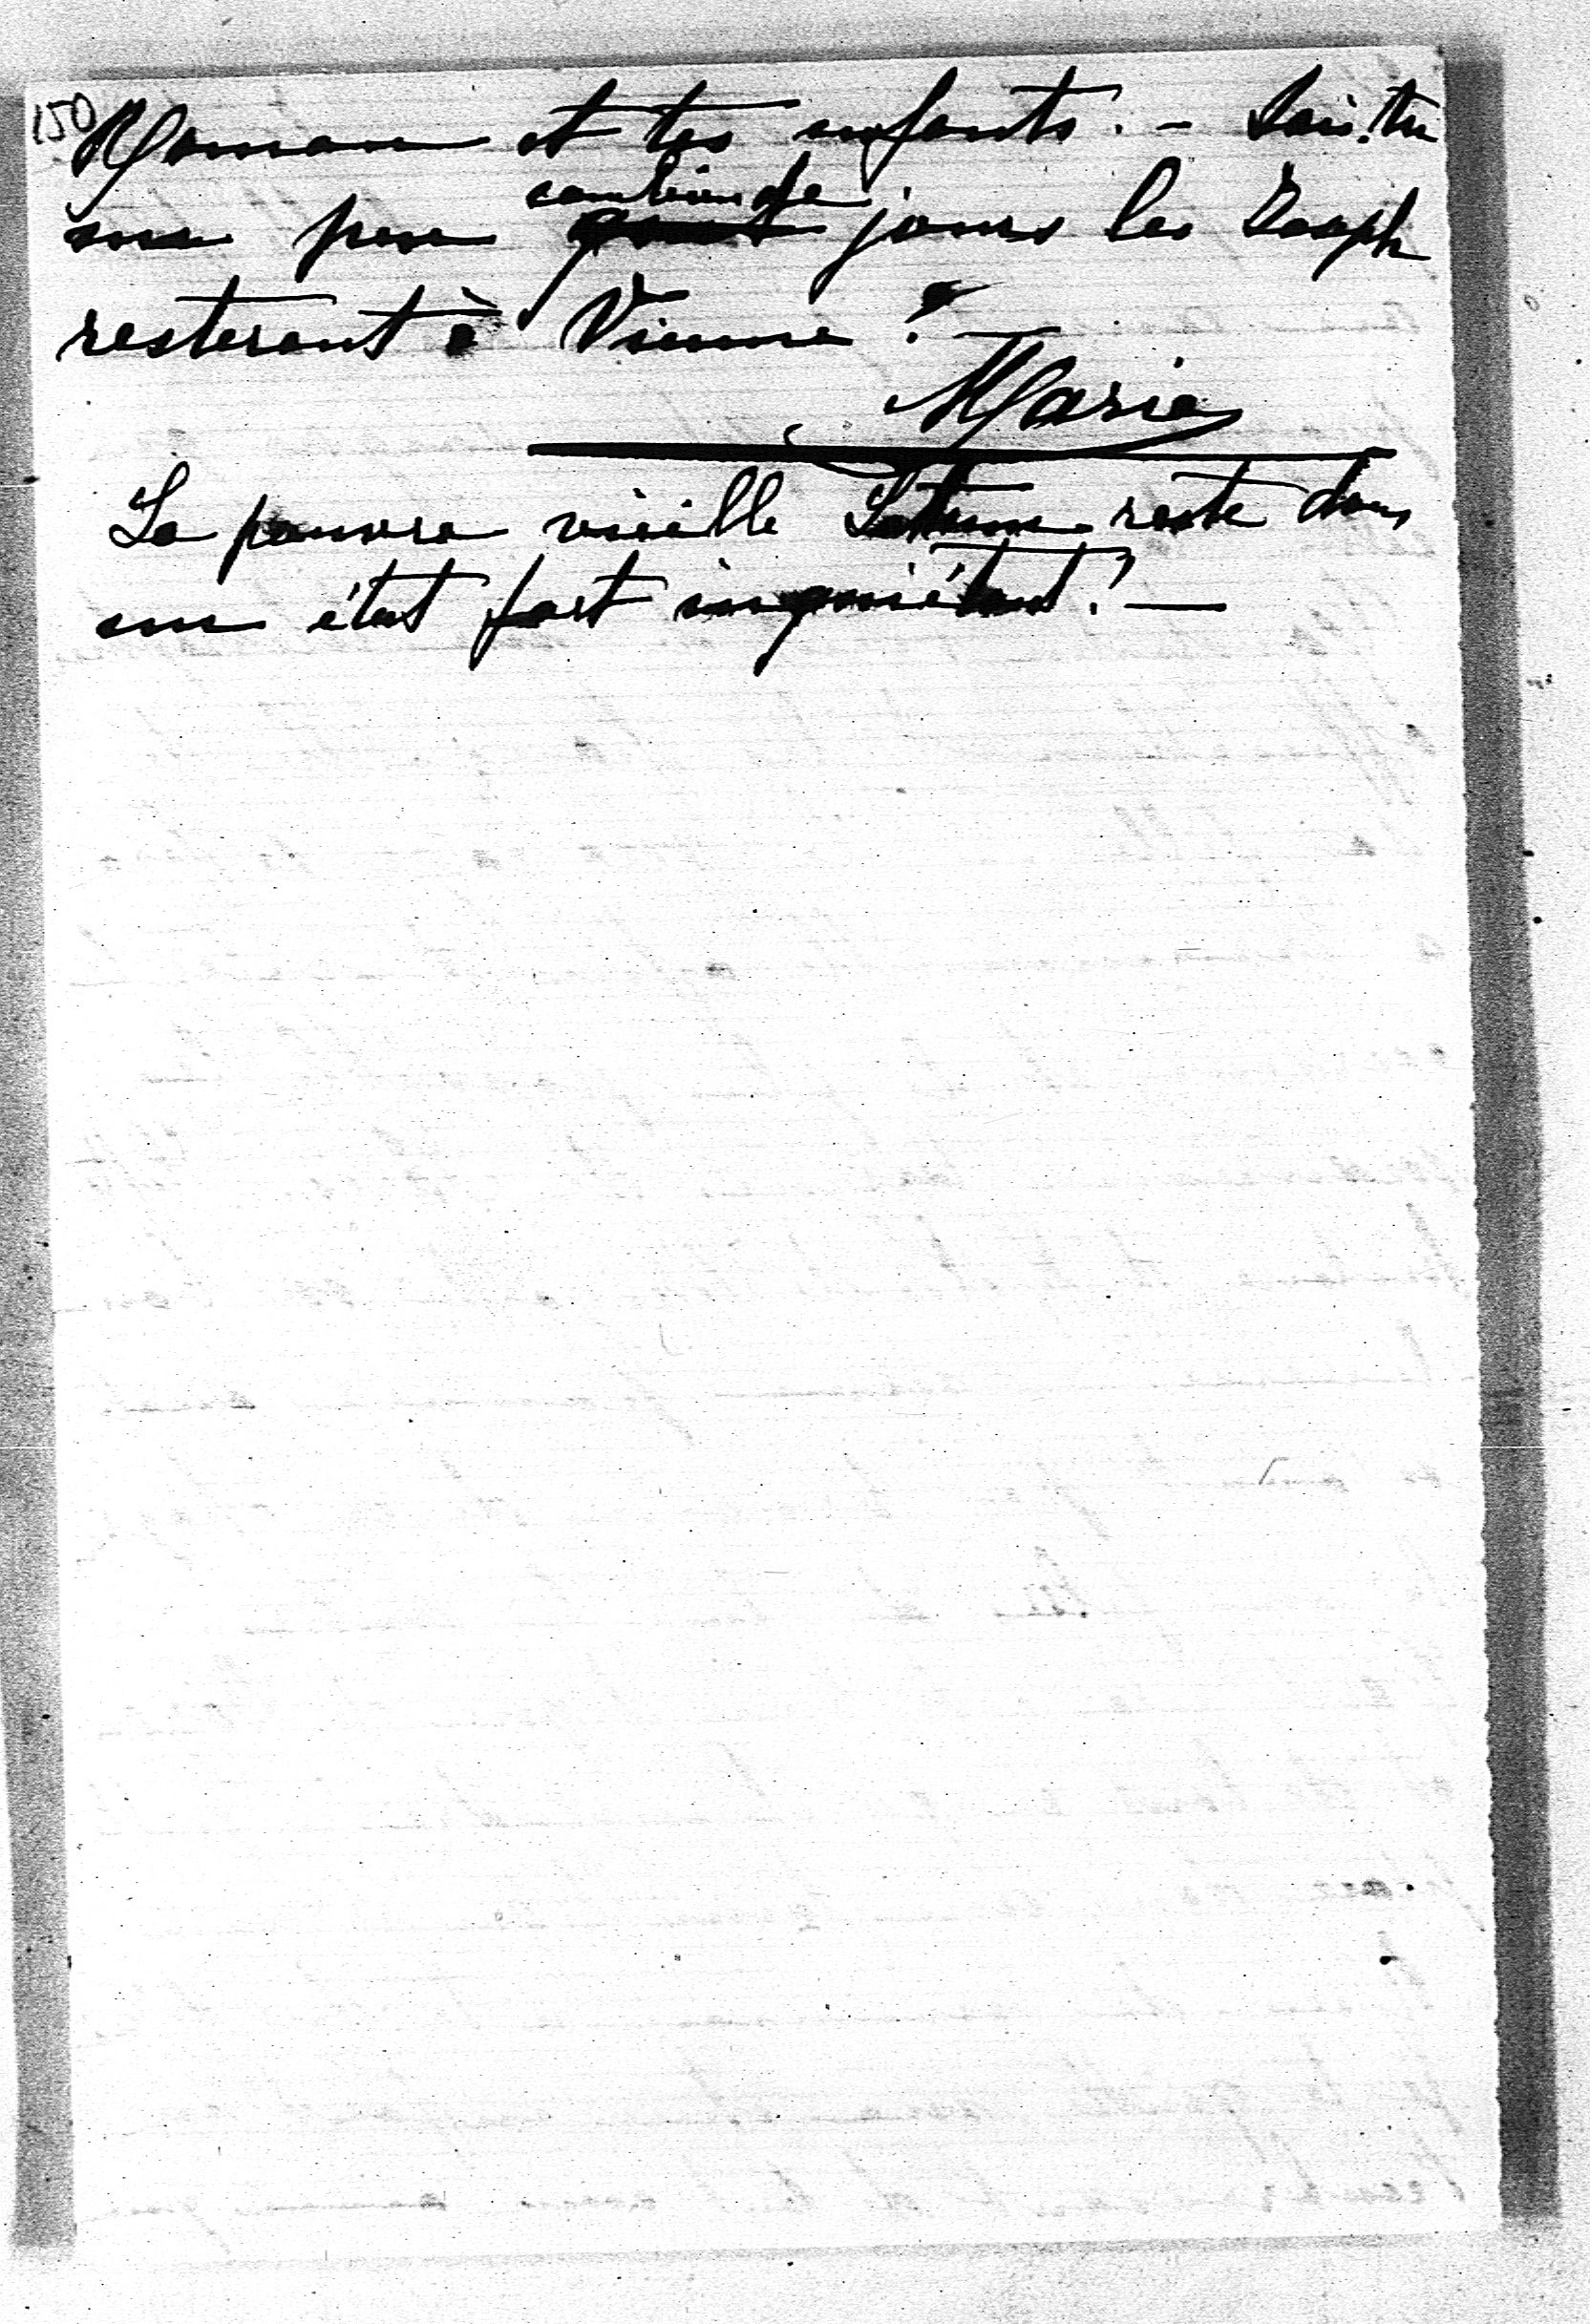 150
Maman et tes enfants. — Sais-tu
un peu combien de jours les Joseph
resteront à Vienne?
Marie
La pauvre vieille reste dans
un état fort inquiétant! —